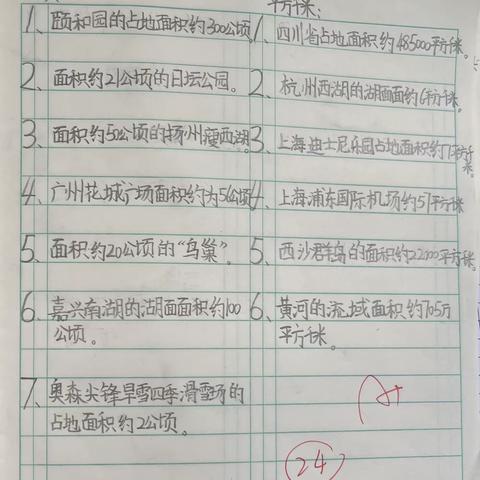 平方千米：
1、颐和园的占地面积约300公顷。
2、面积约21公顷的日坛公园。
3、面积约50公顷的扬州瘦西湖
4、广州花城广场面积约为56公顷
5、面积约20公顷的“鸟巢”。
6、嘉兴南湖的湖面面积约100
公顷。
7、奥森尖锋旱雪四季滑雪场的
占地面积约2公顷。
1、四川省占地面积约485000平方千米。
2、杭州西湖的湖面面约6平方千米。
3、上海迪士尼乐园占地面积约7平方千米。
4、上海浦东国际机场约51平方千米
5、西沙群岛的面积约22000平方千米。
6、黄河的流域面积约705万
平方千米。
A+
24